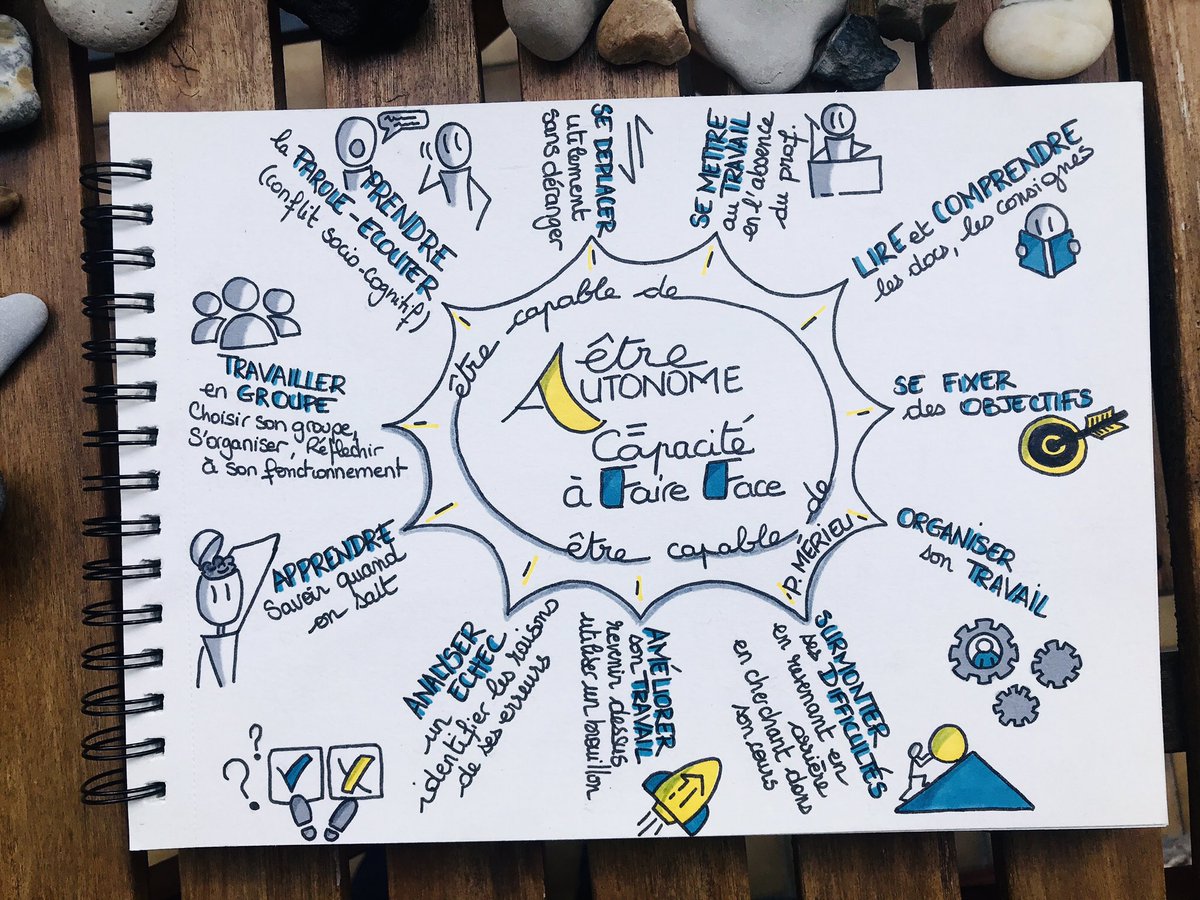 être
AUTONOME
=
Capacité
à Faire Face
être capable de
être capable de
P. MÉRIEU
PRENDRE
la PAROLE - ECOUTER
(conflit socio-cognitif)
SE DEPLACER
utilement
sans déranger
SE METTRE
au TRAVAIL
en l'absence
du prof.
LIRE et COMPRENDRE
les docs, les consignes
SE FIXER
des OBJECTIFS
ORGANISER
son TRAVAIL
SURMONTER
ses DIFFICULTÉS
en revenant en
arrière
en cherchant dans
son cours
AMÉLIORER
son TRAVAIL
revenir dessus
utiliser un brouillon
ANALYSER
un ECHEC
identifier les raisons
de ses erreurs
? ?
APPRENDRE
Savoir quand
on sait
TRAVAILLER
en GROUPE
Choisir son groupe,
S'organiser, Réflechir
à son fonctionnement